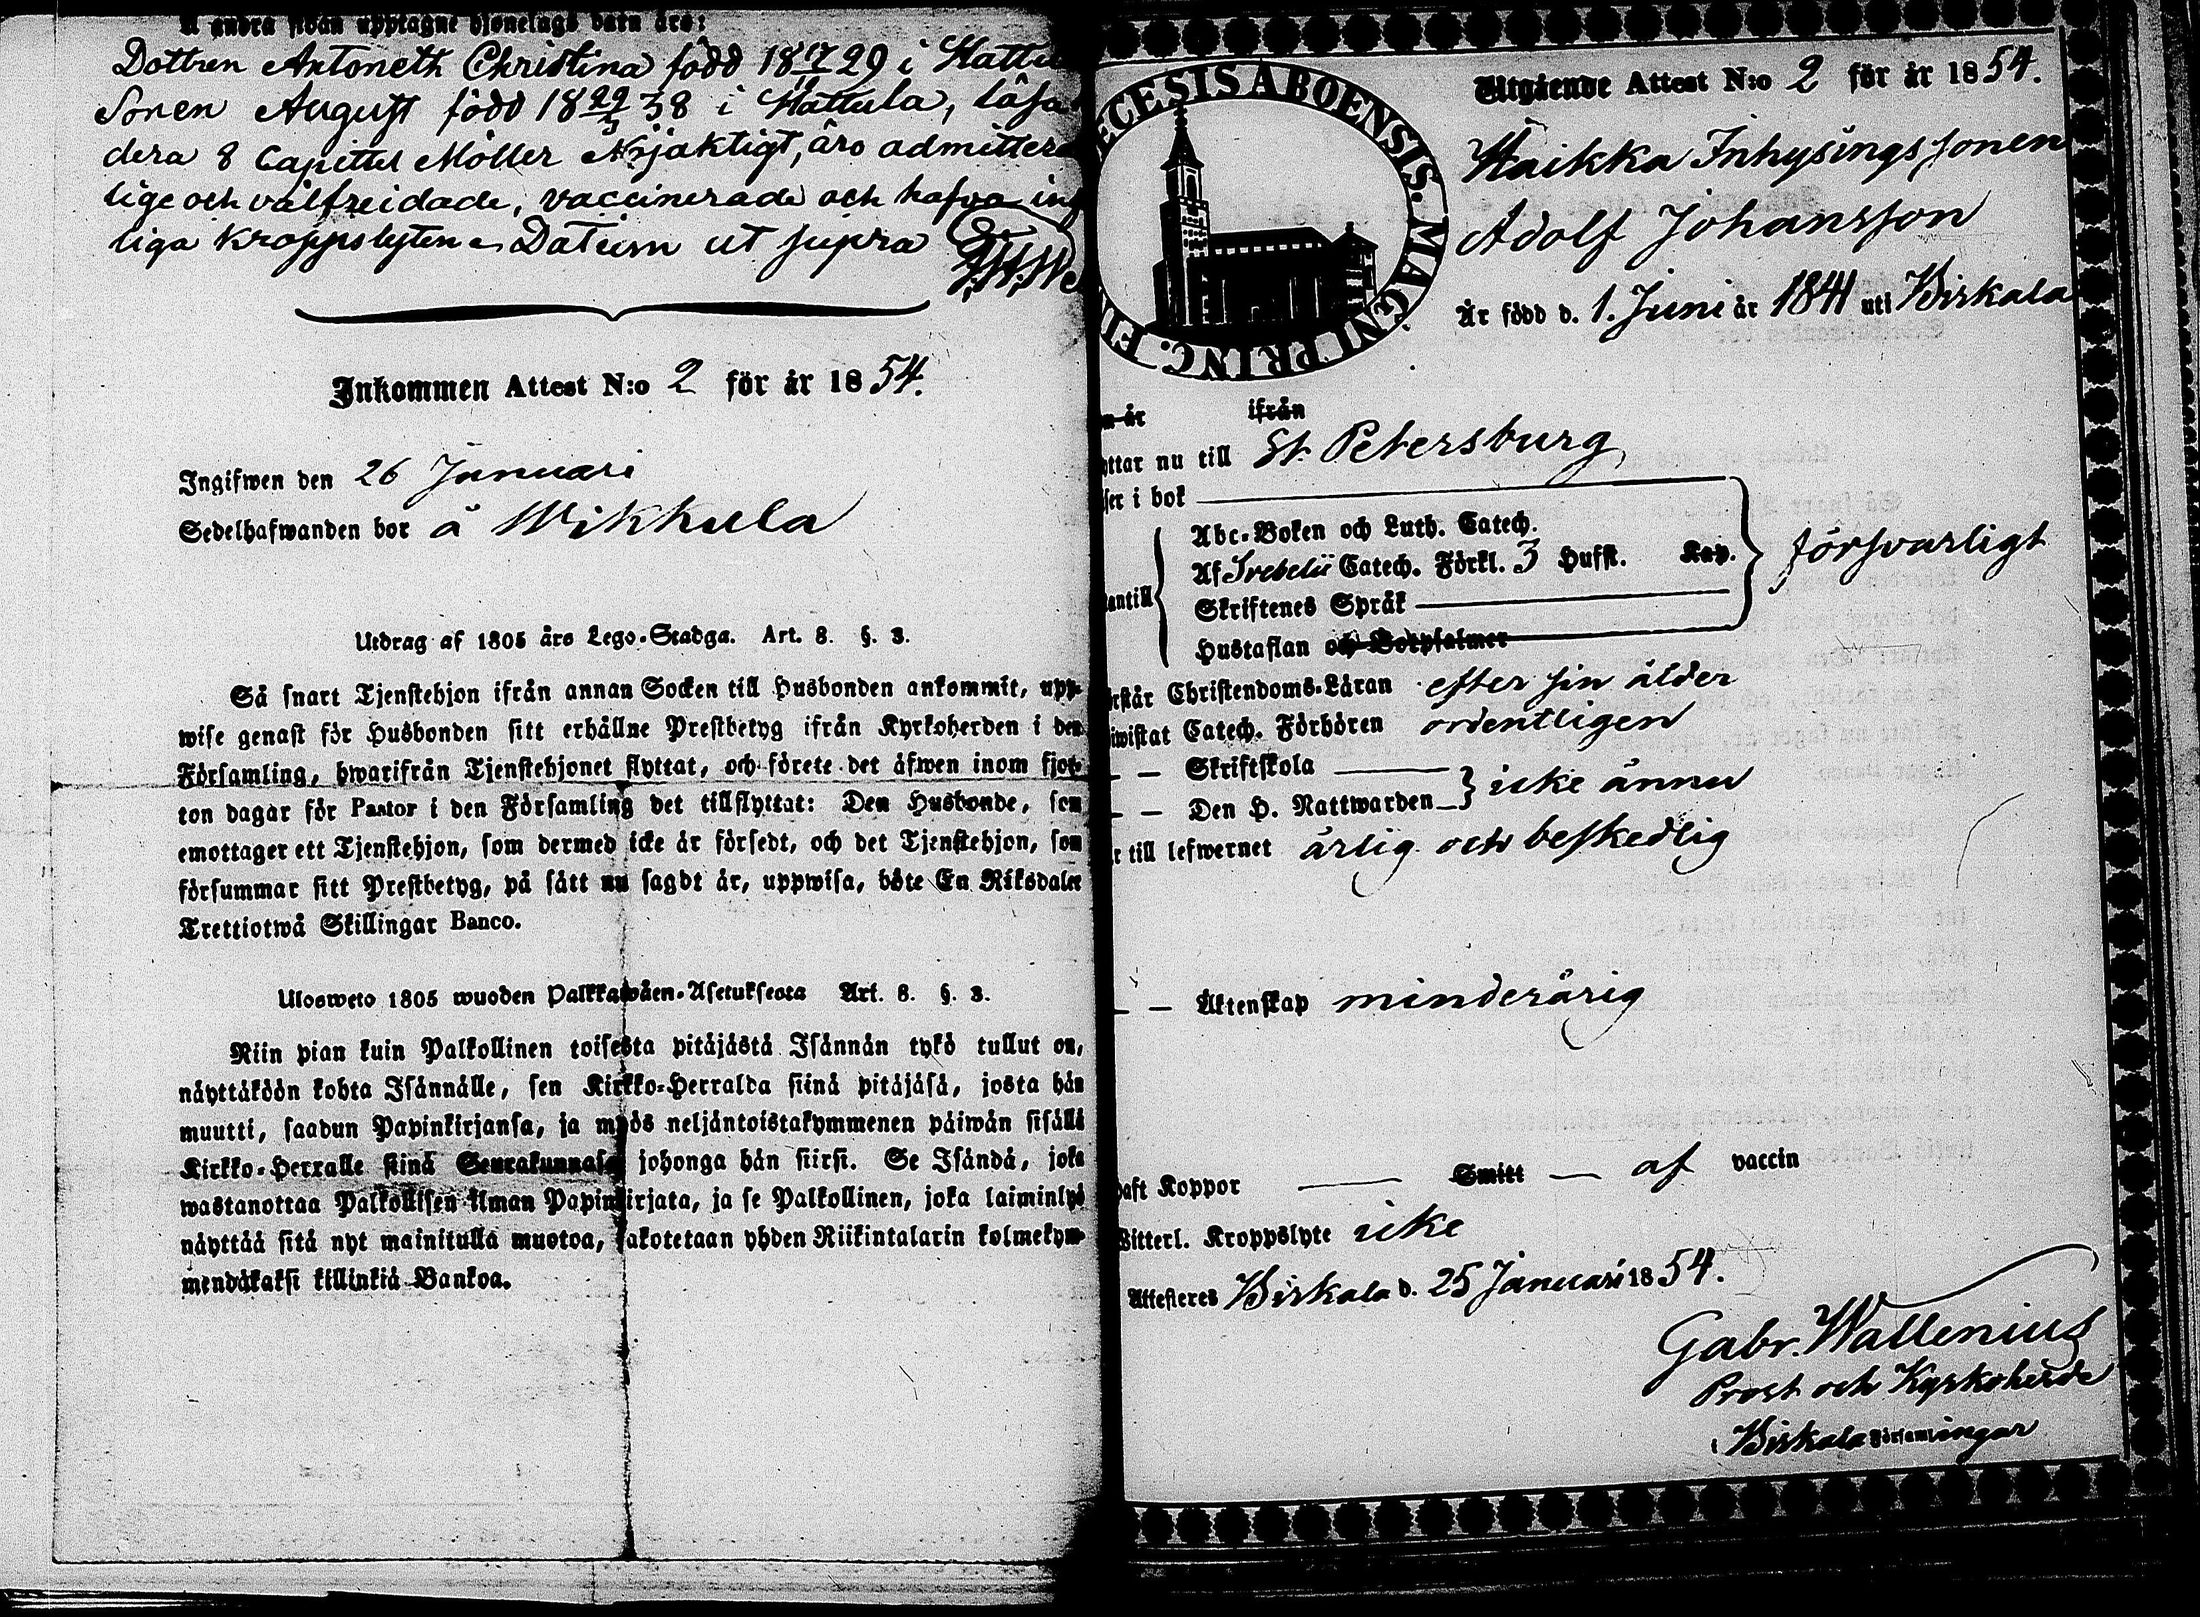 å andra sidan upptagne hjonelags barn äro:
Dottren Antoneth Christina född 18 17/11 29 i Hattu
Sonen August född 18 22/3 38 i Hattula, läsa
dera 8 Capittel Möller Njaktigt, äro admittera
lige och välfreidade, vaccinerade och hafva ing
liga kroppslyten Datum ut supra
Inkommen Attest N:o 2 för år 1854.
Ingifwen den 26 Januari
Sedelhafwanden bor å Wikkula
Utdrag af 1805 års Lego-Stadga. Art. 8. §. 3.
Så snart Tjenstehjon ifrån annan Socken till Husbonden ankommit, upp-
wise genast för Husbonden sitt erhållne Prestbetyg ifrån Kyrkoherden i den
Församling, hwarifrån Tjenstehjonet flyttat, och förete det äfwen inom fjor-
ton dagar för Pastor i den Församling det tillflyttat: Den Husbonde, som
emottager ett Tjenstehjon, som dermed icke är försedt, och det Tjenstehjon, som
försummar sitt Prestbetyg, på sätt nu sagdt är, uppwisa, böte En Riksdaler
Trettiotwå Skillingar Banco.
Ulosweto 1805 wuoden Palkkawäen-Asetuksesta Art. 8. §. 3.
Niin pian kuin Palkollinen toisesta pitäjästä Isännän tykö tullut on,
näyttäköön kohta Isännälle, sen Kirkko-Herralda siinä pitäjäsä, josta hän
muutti, saadun Papinkirjansa, ja myös neljäntoistakymmenen päiwän sisällä
Kirkko-Herralle siinä Seurakunnasa johonga hän siirsi. Se Isändä, joka
wastanottaa Palkollisen ilman Papinkirjata, ja se Palkollinen, joka laiminlyö
näyttää sitä nyt mainitulla muotoa, sakotetaan yhden Riikintalarin kolmekym-
mendäkaksi killinkiä Bankoa.
ECESIS ABOENSIS. MAGNI PRINC. FI
Utgående Attest N:o 2 för år 1854.
Haikka Inhysingssonen
Adolf Johansson
Är född d. 1. Juni år 1841 uti Birkala
n år ifrån
yttar nu till St. Petersburg
ser i bok
Abc-Boken och Luth. Catech.
Af Svebelii Catech. Förkl. 3 Hufst. Kap.
försvarligt
antill
Skriftenes Språk
Hustaflan och Botpsalmer
rstår Christendoms-Läran efter sin ålder
iwistat Catech. Förhören ordentligen
— — Skriftskola
— — Den H. Nattwarden icke ännu
r till lefwernet ärlig och beskedlig
— — Äktenskap minderårig
aft Koppor — Smitt — af vaccin
Witterl. Kroppslyte icke
Attesteres Birkala d. 25 Januari 1854.
Gabr. Wallenius
Prost och Kyrkoherde
i Birkala Församlingar